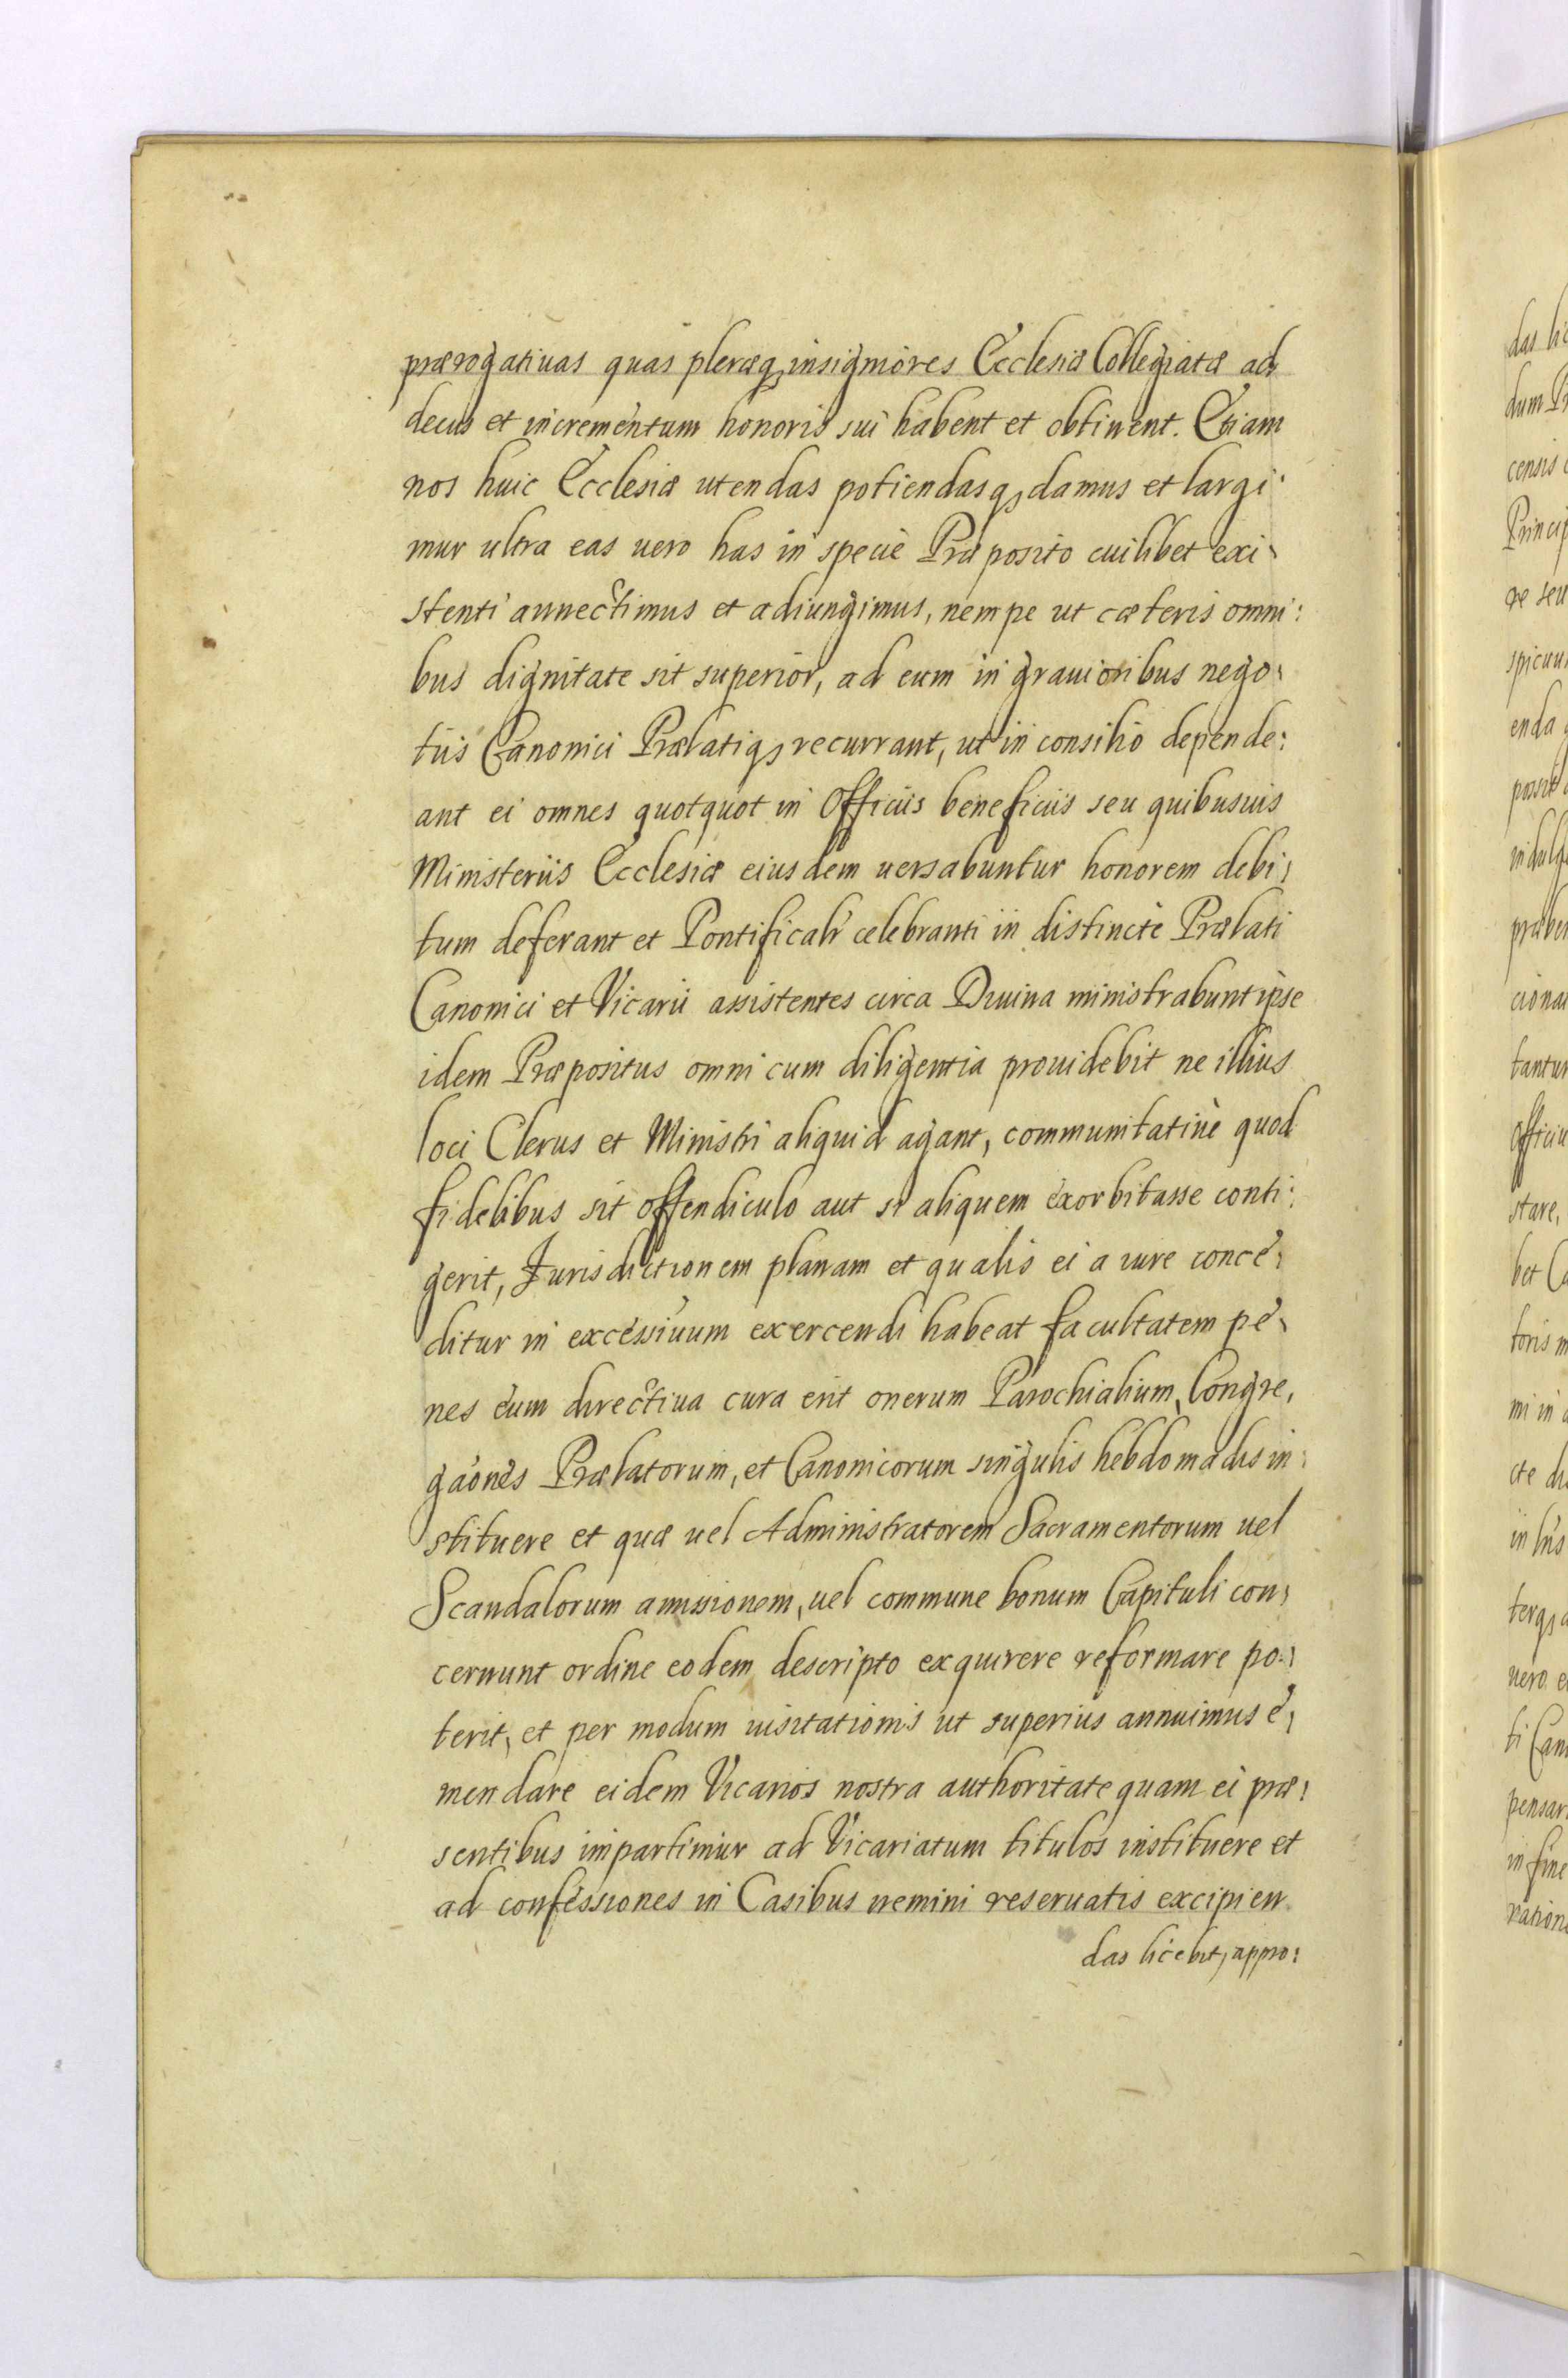 prærogatiuas quas pleræq; insigniores Ecclesiæ Collegiatæ ad
decus et incrementum honoris sui habent et obtinent. Etiam
nos huic Ecclesiæ utendas potiendasq; damus et largi:
mur ultra eas uero has in speciè Præposito cuilibet exi:
stenti annectimus et adiungimus, nempe ut cæteris omni:
bus dignitate sit superior, ad eum in grauioribus nego:
tiis Canonici Prælatiq; recurrant, ut in consilio depende:
ant ei omnes quotquot in Officiis beneficiis seu quibusuis
Ministeriis Ecclesiæ eiusdem uersabuntur honorem debi:
tum deferant et Pontificalr celebranti in distinctè Prælati
Canonici et Vicarii assistentes circa Diuina ministrabunt ipse
idem Præpositus omni cum diligentia prouidebit ne illius
loci Clerus et Ministri aliquid agant, communitatiuè quod
fidelibus sit offendiculo aut si aliquem exorbitasse conti:
gerit, Jurisdictionem planam et qualis ei a iure conce:
ditur in excessiuum exercendi habeat facultatem pe:
nes eum directiua cura erit onerum Parochialium, Congre,
gaones Prælatorum, et Canonicorum singulis hebdomadis in:
stituere et quæ uel Administratorem Sacramentorum uel
Scandalorum amissionem, uel commune bonum Capituli con:
cernunt ordine eodem descripto exquirere reformare po:
terit, et per modum uisitationis ut superius annuimus e:
mendare eidem Vicarios nostra authoritate quam ei præ:
sentibus impartimur ad Vicariatum titulos instituere et
ad confessiones in Casibus nemini reseruatis excipien
das licebit, appro: